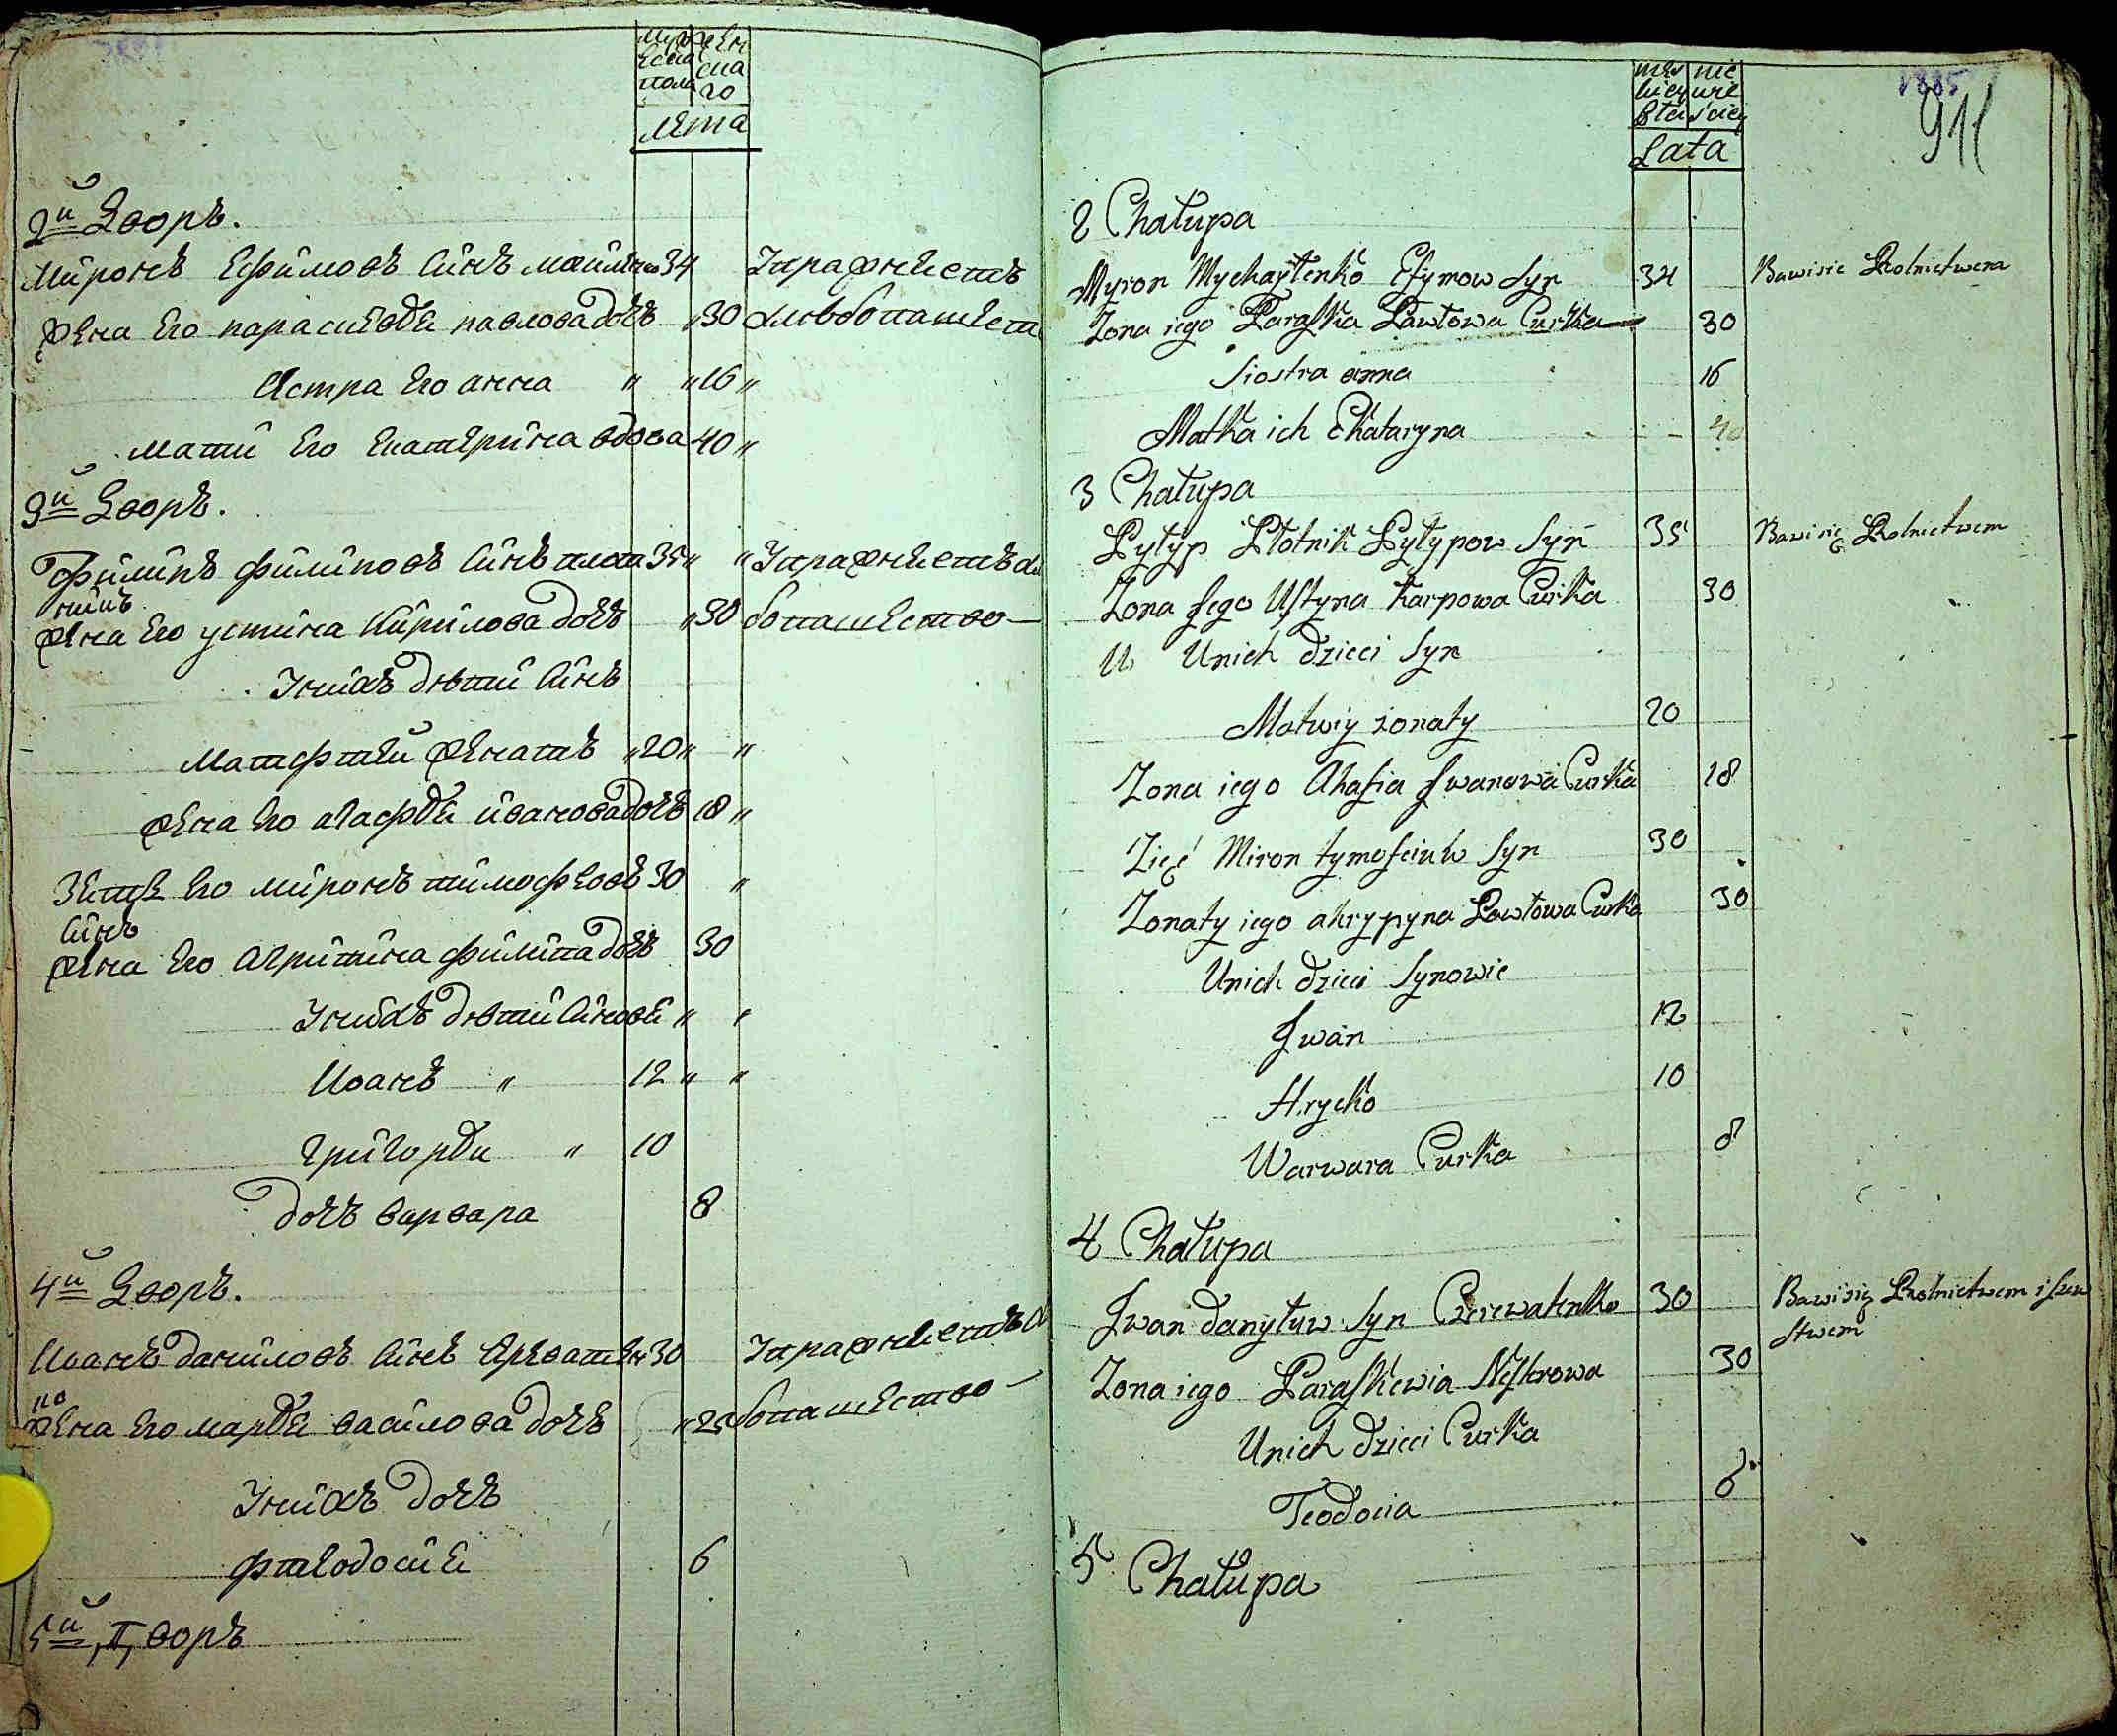 мужескa пола
женскаго
лета
2й Дворъ.
Миронъ Ефимовъ синъ 34 Упражняетъ
жена Его параскевия павлова дочъ 30 хлѣбопашест
систра Его анна " " 16 "
мати Его Екатерина вдова 40 "
3й Дворъ.
Филипъ филиповъ синъ плот 35 " " Упражняетъ хлѣ
никъ
жена Его устина Кирилова дочъ " 30 бопашество
Унихъ дѣти синъ
Матфтей женатъ " 20 " "
жена Его агафия иванова дочъ 18 "
Зять Его миронъ тимофеевъ 30 "
синъ
жена Его Агрипина филипа дочъ 30
Унихъ дѣти синови " "
Иванъ " 12 " "
григорий " 10
дочъ варвара 8
4й Дворъ.
Иванъ даниловъ синъ Череватен 30 Упражняетъ хлѣ
ко
жена Его мария василова дочъ " 25 бопашество
Унихъ дочъ
фтеодосия 6
5й Дворъ
Lata
1885
911
2 Chałupa
Myron Mychajłenko Efymow Syn 34 Bawisie Rolnictwem
Żona iego Paraska Pawłowa Curka 30
Siostra anna 16
Matka ich Ekataryna 40
3 Chałupa
Pyłyp Płotnik Pyłypow Syn 35 Bawi się Rolnictwem
Żona Jego Ustyna Karpowa Curka 30
U Unich dzieci Syn
Matwiy żonaty 20
Żona iego Ahafia Iwanowa Curka 18
Zięć Miron tymofeiuw Syn 30
Żonaty iego ahrypyna Pawłowa Curka 30
Unich dzieci Synowie
Iwan 12
Hrycko 10
Warwara Curka 8
4 Chałupa
Iwan danyłuw Syn Czerewatenko 30 Bawi się Rolnictwem i Szew
stwem
Żona iego Paraskewia Nestrowa 30
Unich dzieci Curka
Teodocia 6
5 Chałupa